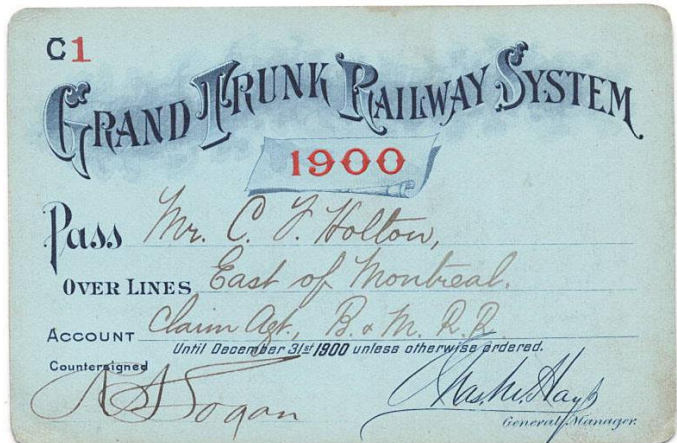 C1
GRAND TRUNK RAILWAY SYSTEM
1900
Pass Mr. C. F. Holton,
OVER LINES East of Montreal.
ACCOUNT Claim Agt., B. & M. R.R.
Until December 31st 1900 unless otherwise ordered.
Countersigned
Logan
Chas. M. Hays
General Manager.